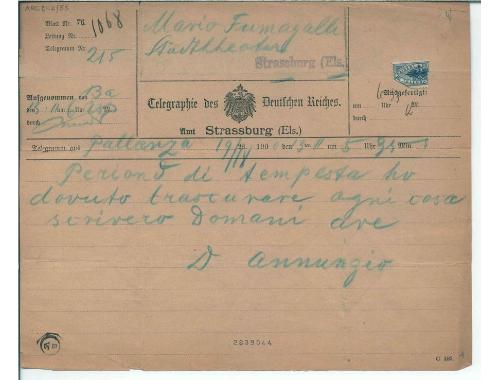 ARCD-2/53
Blatt Nr. 76
Leitung Nr. 1068
Telegramm Nr. 215
Mario Fumagalli
Stadttheater
Strassburg (Els.)
Aufgenommen von Ba
durch
Telegraphie des Deutschen Reiches.
Amt Strassburg (Els.)
Ausgefertigt:
um Uhr
durch
Telegramm aus Pallanza 19/18 190 den 13 um 5 Uhr Min
Periond di tempesta ho
dovuto trascurare ogni cosa
scrivero Domani ave
D Annunzio
2839044
C 187.